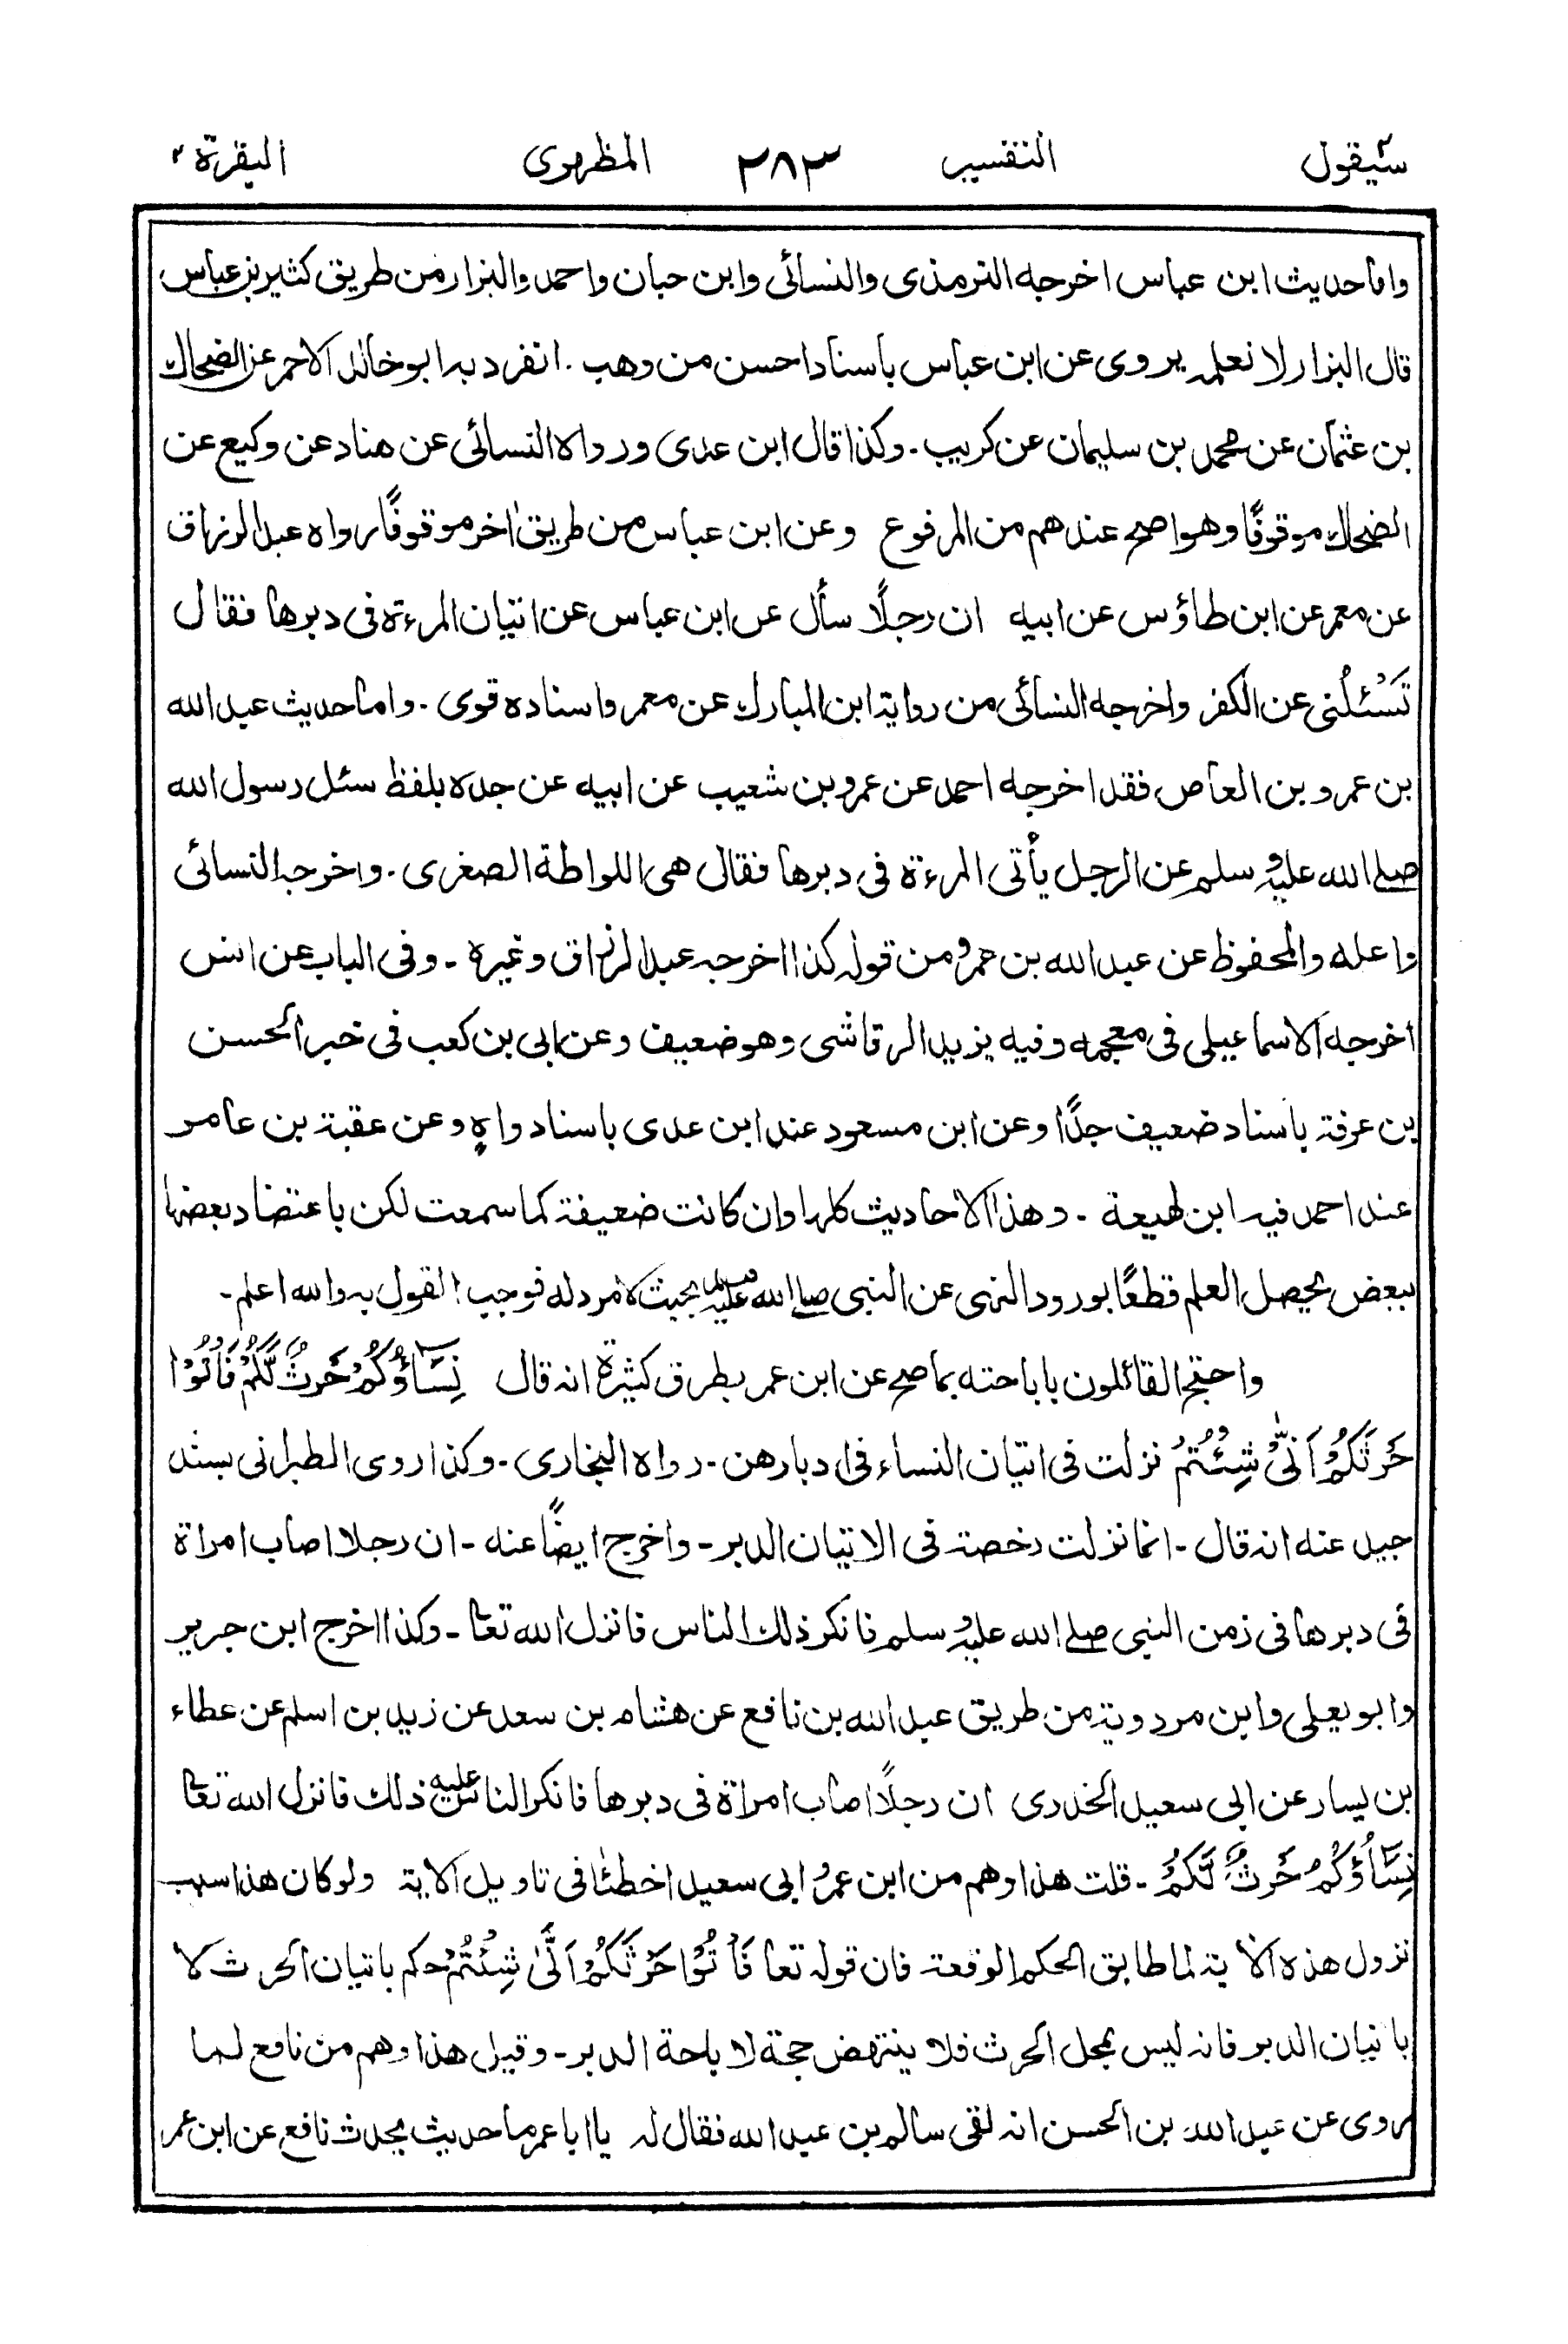 سيقول ٢ التفسير ٢٨٣ المظهرى البقرة ٢
واما حديث ابن عباس اخرجه الترمذى والنسائى وابن حبان واحمد والبزار من طريق كثير بن عباس
قال البزار لا نعلمه يروى عن ابن عباس باسناد احسن من وهب ۔ انفرد به ابو خالد الاحمر عن الضحاك
بن عثمان عن محمد بن سليمان عن كريب ۔ وكذا قال ابن عدى ورواه النسائى عن هناد عن وكيع عن
الضحاك موقوفًا وهو اصح عندهم من المرفوع وعن ابن عباس من طريق اخر موقوفًا رواه عبد الرزاق
عن معمر عن ابن طاؤس عن ابيه ان رجلًا سأل عن ابن عباس عن اتيان المرءة فى دبرها فقال
تَسْئَلُنى عن الكفر واخرجه النسائى من رواية ابن المبارك عن معمر واسناده قوى ۔ واما حديث عبد الله
بن عمرو بن العاص فقد اخرجه احمد عن عمرو بن شعيب عن ابيه عن جده بلفظ سئل رسول الله
صلے الله عليه وسلم عن الرجل يأتى المرءة فى دبرها فقال هى اللواطة الصغرى ۔ واخرجه النسائى
واعله والمحفوظ عن عبد الله بن عمرو من قوله كذا اخرجه عبد الرزاق وغيره ۔ وفى الباب عن انس
اخرجه الاسماعيلى فى معجمه وفيه يزيد الرقاشى وهو ضعيف وعن ابى بن كعب فى خبر الحسن
بن عرفة باسناد ضعيف جدًا وعن ابن مسعود عند ابن عدى باسناد واهٍ وعن عقبة بن عامر
عند احمد فيه ابن لهيعة ۔ وهذا الاحاديث كلها وان كانت ضعيفة كما سمعت لكن باعتضاد بعضها
ببعض يحصل العلم قطعًا بورود النهى عن النبى صلے الله عليه وسلم بحيث لا مرد له فوجب القول به والله اعلم ۔
واحتج القائلون باباحته بما صح عن ابن عمر بطرق كثيرة انه قال نِسَآؤُكُمْ حَرْثٌ لَّكُمْ فَأْتُوْا
حَرْثَكُمْ اَنّٰى شِئْتُمْ نزلت فى اتيان النساء فى ادبارهن ۔ رواه البخارى ۔ وكذا روى الطبرانى بسند
جيد عنه انه قال ۔ انما نزلت رخصة فى الاتيان الدبر ۔ واخرج ايضًا عنه ۔ ان رجلا اصاب امراة
فى دبرها فى زمن النبى صلے الله عليه وسلم فانكر ذلك الناس فانزل الله تعا ۔ وكذا اخرج ابن جرير
وابو يعلى وابن مردوية من طريق عبد الله بن نافع عن هشام بن سعد عن زيد بن اسلم عن عطاء
بن يسار عن ابى سعيد الخدرى ان رجلًا اصاب امراة فى دبرها فانكر الناس عليه ذلك فانزل الله تعا
نِسَآؤُكُمْ حَرْثٌ لَّكُمْ ۔ قلت هذا وهم من ابن عمر و ابى سعيد اخطئا فى تاويل الاية ولو كان هذا سبب
نزول هذه الاية لما طابق الحكم الوقعة فان قوله تعا فَأْتُوْا حَرْثَكُمْ اَنّٰى شِئْتُمْ حكم باتيان الحرث لا
باتيان الدبر فانه ليس بمحل الحرث فلا ينتهض حجة لاباحة الدبر ۔ وقيل هذا وهم من نافع لما
روى عن عبد الله بن الحسن انه لقى سالم بن عبد الله فقال له يا ابا عمر ما حديث يحدث نافع عن ابن عمر